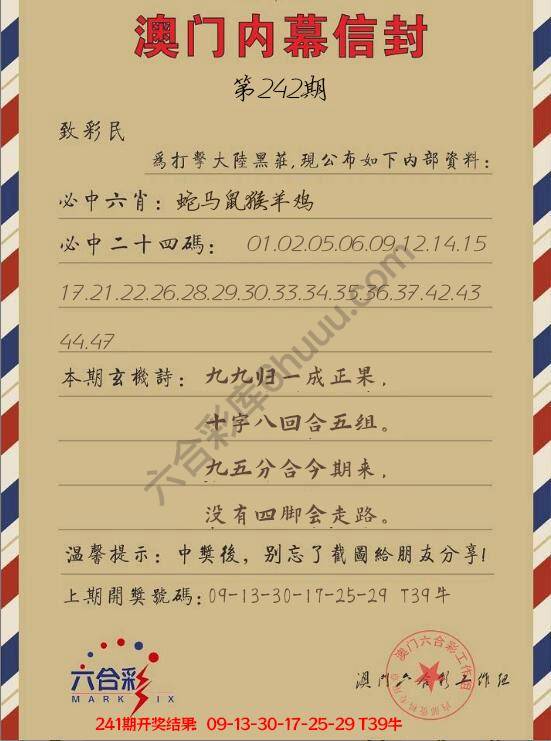 澳门内幕信封
第242期
致彩民
為打擊大陸黑莊,現公布如下内部資料:
必中六肖: 蛇马鼠猴羊鸡
必中二十四碼: 01.02.05.06.09.12.14.15
17.21.22.26.28.29.30.33.34.35.36.37.42.43
44.47
本期玄機詩: 九九归一成正果,
十字八回合五组。
九五分合今期来,
没有四脚会走路。
温馨提示: 中獎後, 别忘了截圖給朋友分享!
上期開獎號碼: 09-13-30-17-25-29 T39牛
六合彩库6huuu.com
六合彩
MARK SIX
澳门六合彩工作组
澳门六合彩工作组
241期开奖结果: 09-13-30-17-25-29 T39牛